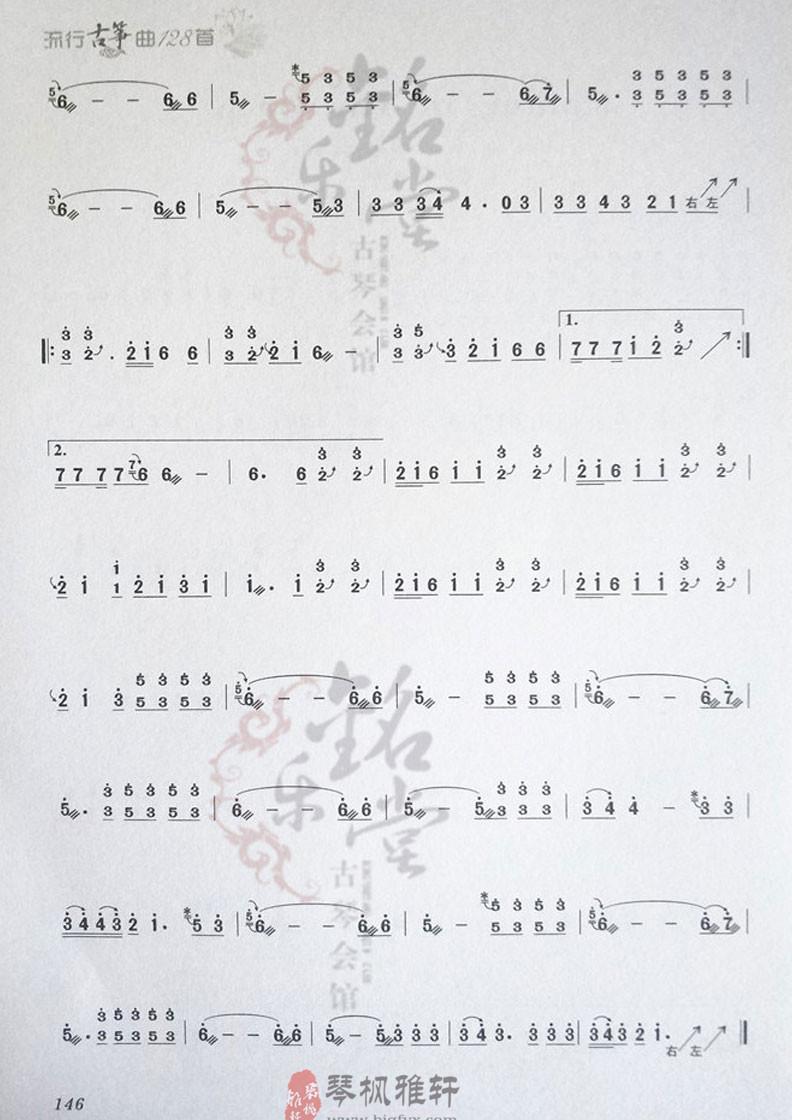 流行古筝曲128首
5 6 — — 6 6 | 5 — 5 3 5 3 | 5 6 — — 6 7 | 5 . 3 5 3 5 3 |
5 6 — — 6 6 | 5 — — 5 3 | 3 3 3 4 4 . 0 3 | 3 3 4 3 2 1 右 左
3 3 2 . 2 1 6 6 | 3 3 2 2 1 6 — | 3 3 3 2 1 6 6 | 1. 7 7 7 1 2 2
2. 7 7 7 7 7 6 6 — | 6 . 6 2 2 | 2 1 6 1 1 2 2 | 2 1 6 1 1 2 2 |
2 1 1 2 1 3 1 | 1 . 1 2 2 | 2 1 6 1 1 2 2 | 2 1 6 1 1 2 2 |
2 1 3 5 3 5 3 | 5 6 — — 6 6 | 5 — 5 3 5 3 | 5 6 — — 6 7 |
5 . 3 5 3 5 3 | 6 — — 6 6 | 5 — 5 3 3 3 | 3 4 4 — 3 3 |
3 4 4 3 2 1 . 5 3 | 5 6 — — 6 6 | 5 — 5 3 5 3 | 5 6 — — 6 7 |
5 . 3 5 3 5 3 | 6 — — 6 6 | 5 — 5 3 3 3 | 3 4 3 . 3 3 3 | 3 4 3 2 1 . 右 左
铭乐堂
古琴会馆
146
琴枫雅轩